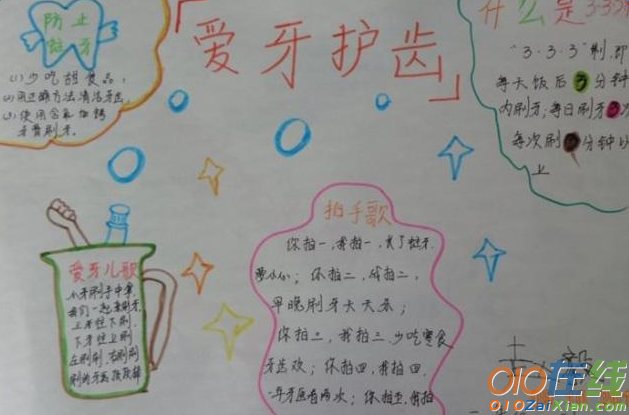 防止
蛀牙
(1)少吃甜食品;
(2)用正确方法清洁牙齿
(3)使用含氟
牙膏刷牙。
「爱牙护齿」
什么是3·3·3
"3·3·3"制,即
每天饭后3分钟
内刷牙,每日刷牙3次
每次刷3分钟以
上
爱牙儿歌
小牙刷手中拿,
我们一起来刷牙,
上牙往下刷,
下牙往上刷
左刷刷,右刷刷
拍手歌
你拍一,我拍一,
你拍二,我拍二,
早晚刷牙天天
你拍三,我拍三,少吃零食
你拍四,我拍四,
年牙医看两次;你拍五,我拍
010在线
010ZaiXian.com